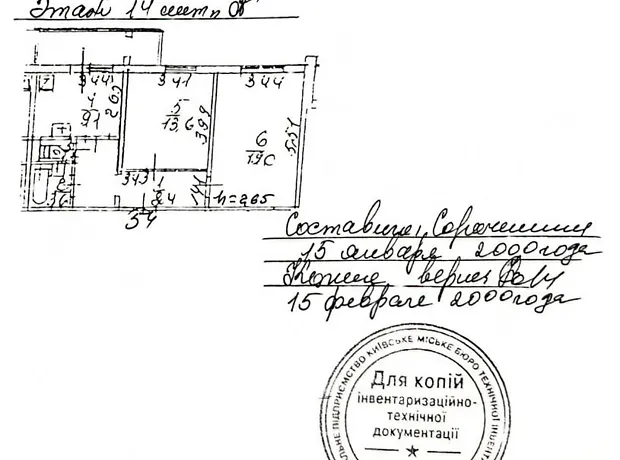 Этаж 14
3 44 3 41 3 44
4
9,1
2 65
5
13,6
3 99
6
19,0
5.51
3 43
1
8,4
1 41
h=2,65
54
Составила:
15 января 2000 года
Копия верна
15 феврале 2000 года
ПІДПРИЄМСТВО КИЇВСЬКЕ МІСЬКЕ БЮРО ТЕХНІЧНОЇ
Для копій
інвентаризаційно-
технічної
документації